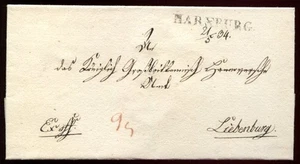 HARZBURG
2/5 34.
An
das Königlich Großbritannisch Hannoversche
Amt
Liebenburg.